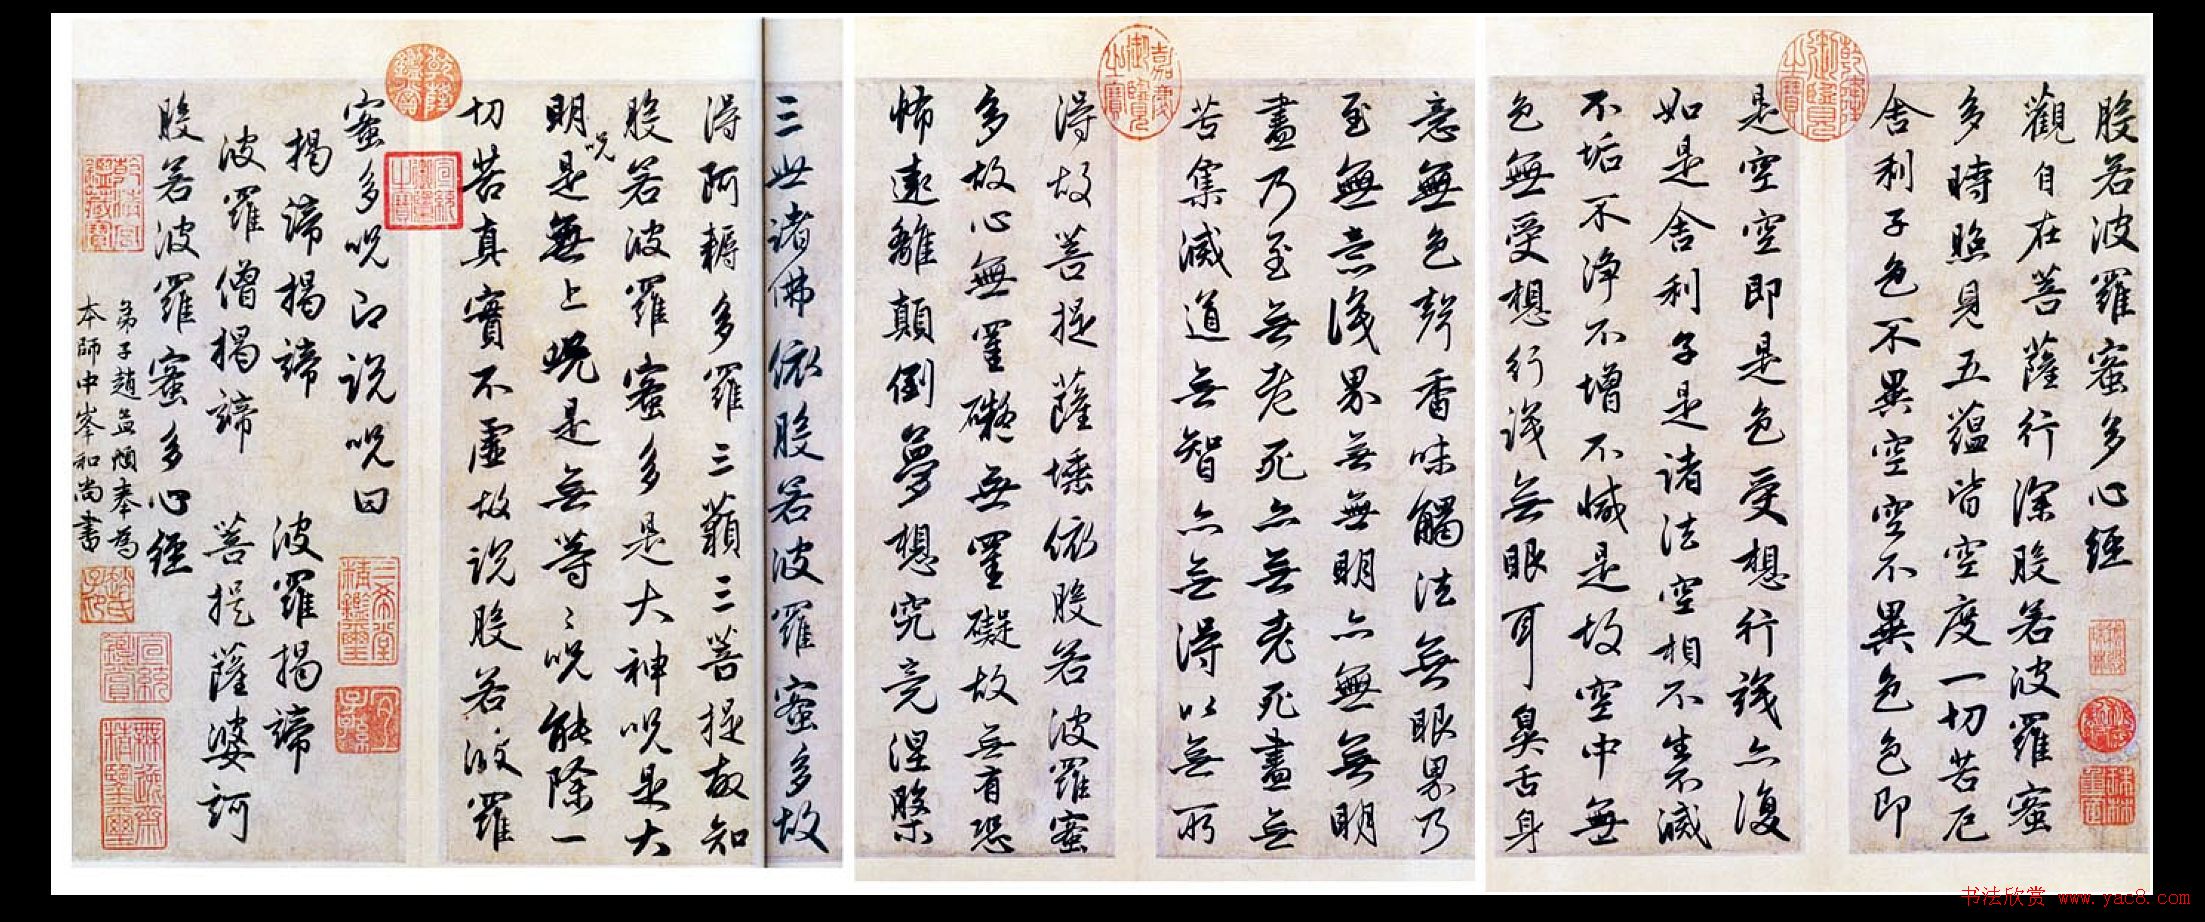 般若波羅蜜多心經
觀自在菩薩行深般若波羅蜜
多時照見五蘊皆空度一切苦厄
舍利子色不異空空不異色色即
是空空即是色受想行識亦復
如是舍利子是諸法空相不生不滅
不垢不淨不增不減是故空中無
色無受想行識無眼耳鼻舌身
意無色聲香味觸法無眼界乃
至無意識界無無明亦無無明
盡乃至無老死亦無老死盡無
苦集滅道無智亦無得以無所
得故菩提薩埵依般若波羅蜜
多故心無罣礙無罣礙故無有恐
怖遠離顛倒夢想究竟涅槃
三世諸佛依般若波羅蜜多故
得阿耨多羅三藐三菩提故知
般若波羅蜜多是大神呪是大
明呪是無上呪是無等等呪能除一
切苦真實不虛故說般若波羅
蜜多呪即說呪曰
揭諦揭諦 波羅揭諦
波羅僧揭諦 菩提薩婆訶
般若波羅蜜多心經
弟子趙孟頫奉為
本師中峯和尚書
乾隆御覽之寶
嘉慶御覽之寶
乾隆鑑賞
宣統御覽之寶
三希堂精鑑璽
宜子孫
趙氏子昂
宣統鑑賞
無逸齋精鑒璽
书法欣赏 www.yac8.com